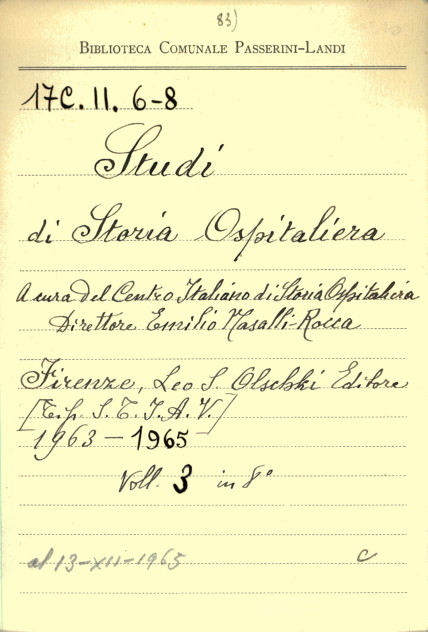 83)
BIBLIOTECA COMUNALE PASSERINI-LANDI
17C. II. 6-8
Studi
di Storia Ospitaliera
A cura del Centro Italiano di Storia Ospitaliera
Direttore Emilio Nasalli-Rocca
Firenze, Leo S. Olschki Editore
[Tip. S. T. I. A. V.]
1963-1965
Voll. 3 in 8°
al 13-XII-1965 C